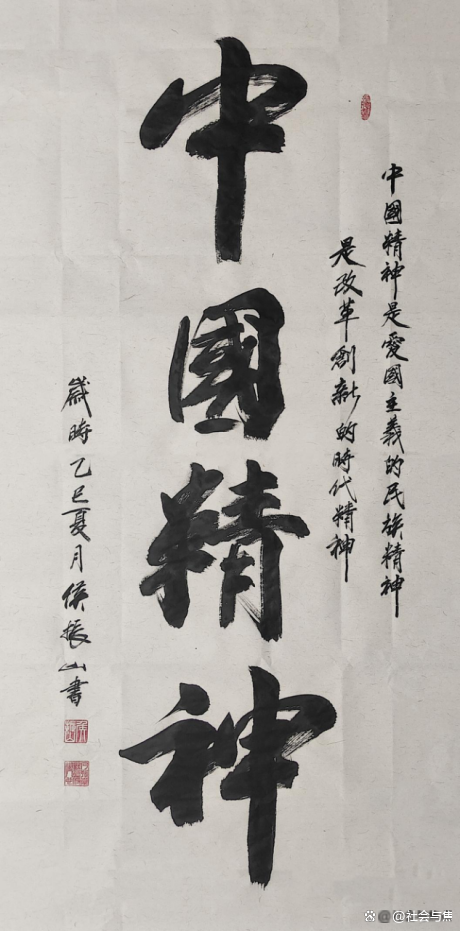 中國精神是愛國主義的民族精神
是改革創新的時代精神
中國精神
歲時乙巳夏月侯振山書
@社会与焦